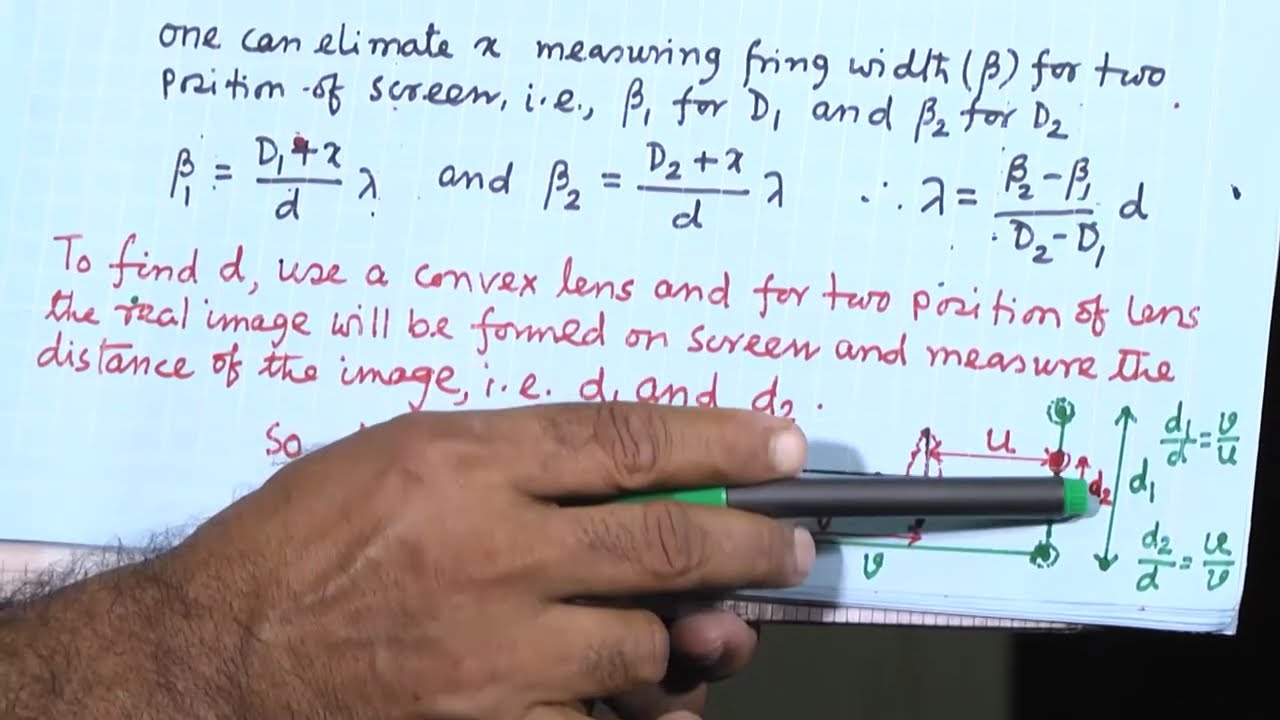 one can elimate x measuring fring width (β) for two
position of screen, i.e., β₁ for D₁ and β₂ for D₂
β₁ = (D₁ + x)/d λ and β₂ = (D₂ + x)/d λ ∴ λ = (β₂ - β₁)/(D₂ - D₁) d
To find d, use a convex lens and for two position of lens
the real image will be formed on screen and measure the
distance of the image, i.e. d₁ and d₂.
So
u
d₂
d₁
d₁/d = v/u
v
d₂/d = u/v